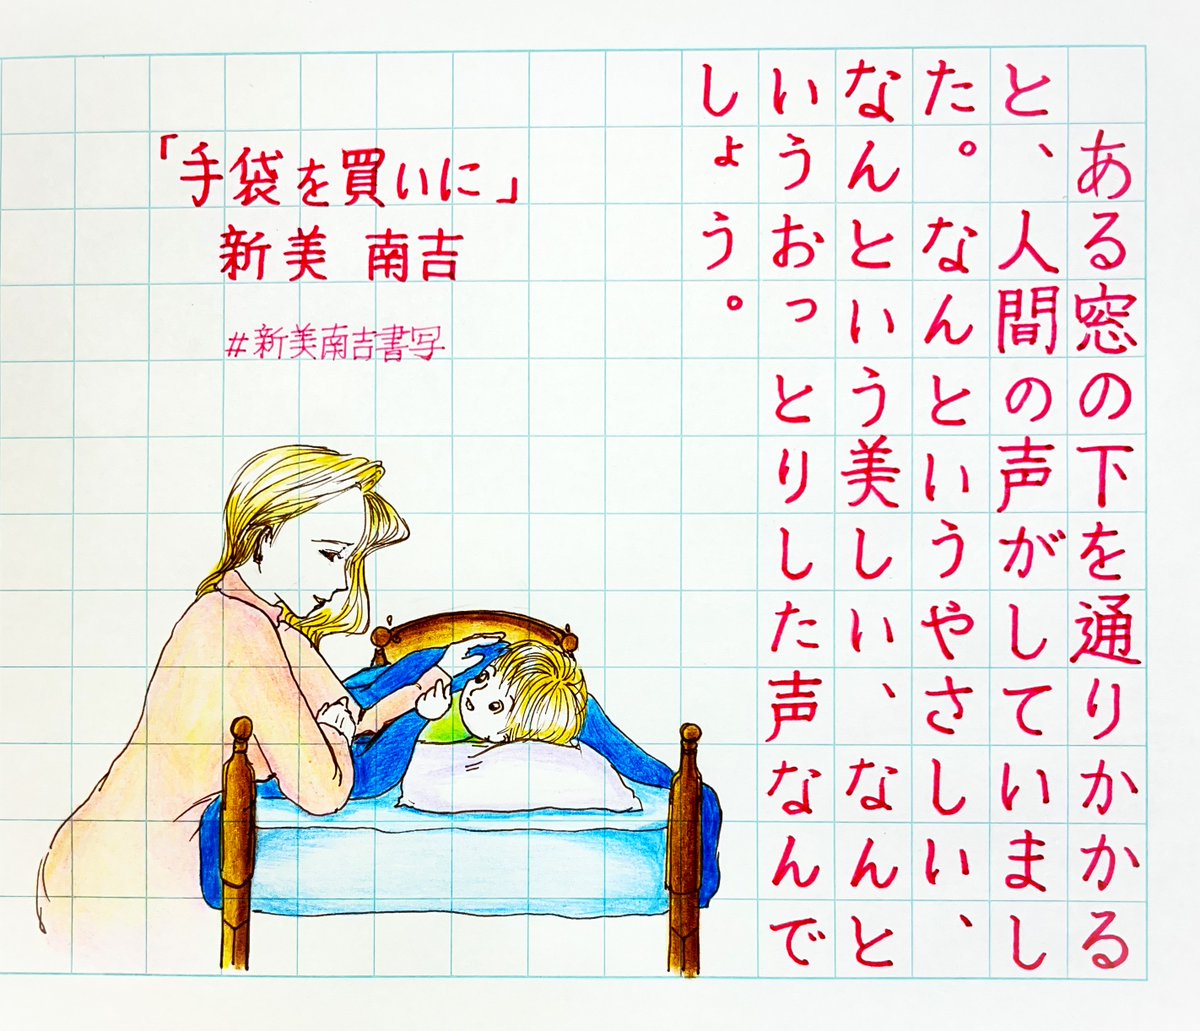 ある窓の下を通りかかる
と、人間の声がしていまし
た。なんというやさしい、
なんという美しい、なんと
いうおっとりした声なんで
しょう。
「手袋を買いに」
新美 南吉
#新美南吉書写